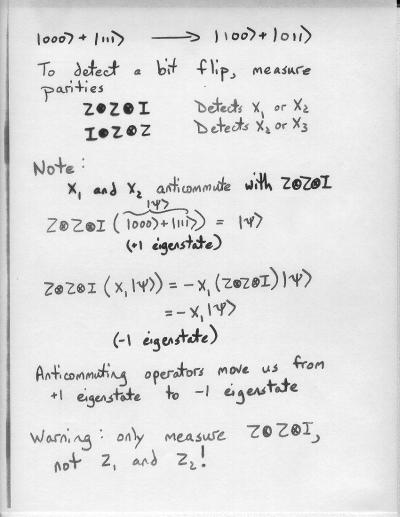 |000⟩ + |111⟩ ⟶ |100⟩ + |011⟩
To detect a bit flip, measure
parities
Z⊗Z⊗I Detects X₁ or X₂
I⊗Z⊗Z Detects X₂ or X₃
Note:
X₁ and X₂ anticommute with Z⊗Z⊗I
|ψ⟩
Z⊗Z⊗I (|000⟩+|111⟩) = |ψ⟩
(+1 eigenstate)
Z⊗Z⊗I (X₁|ψ⟩) = -X₁(Z⊗Z⊗I)|ψ⟩
= -X₁|ψ⟩
(-1 eigenstate)
Anticommuting operators move us from
+1 eigenstate to -1 eigenstate
Warning: only measure Z⊗Z⊗I,
not Z₁ and Z₂!